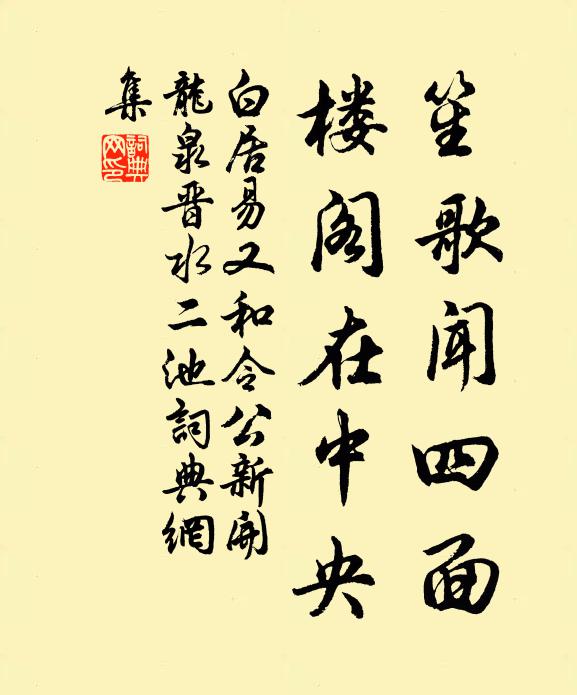 笙歌闻四面
楼阁在中央
白居易又和令公新開
龍泉晋水二池詞典網
集
詞典
网印